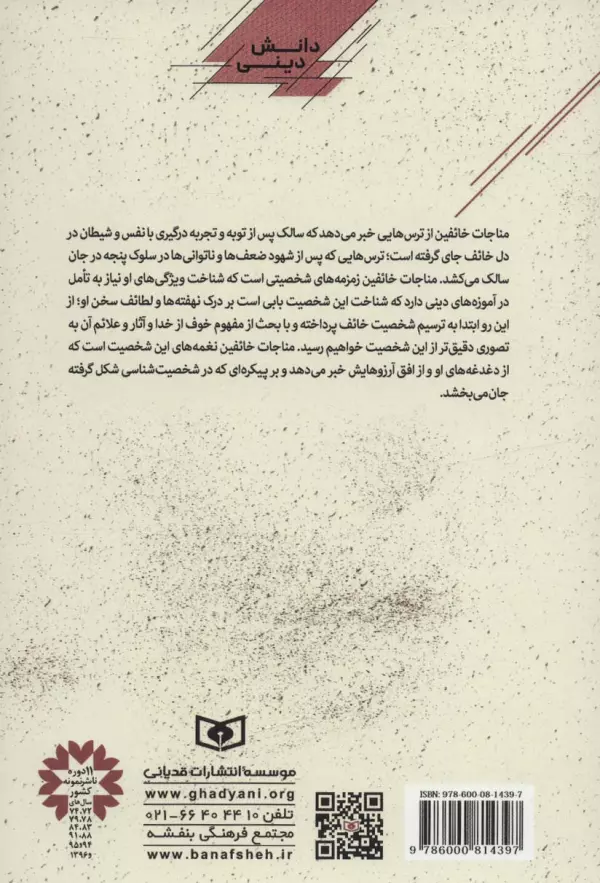 دانش
دینی
مناجات خائفین از ترس‌هایی خبر می‌دهد که سالک پس از توبه و تجربه درگیری با نفس و شیطان در
دل خائف جای گرفته است؛ ترس‌هایی که پس از شهود ضعف‌ها و ناتوانی‌ها در سلوک پنجه در جان
سالک می‌کشد. مناجات خائفین زمزمه‌های شخصیتی است که شناخت ویژگی‌های او نیاز به تأمل
در آموزه‌های دینی دارد که شناخت این شخصیت بابی است بر درک نهفته‌ها و لطائف سخن او؛ از
این رو ابتدا به ترسیم شخصیت خائف پرداخته و با بحث از مفهوم خوف از خدا و آثار و علائم آن به
تصوری دقیق‌تر از این شخصیت خواهیم رسید. مناجات خائفین نغمه‌های این شخصیت است که
از دغدغه‌های او و از افق آرزوهایش خبر می‌دهد و بر پیکره‌ای که در شخصیت‌شناسی شکل گرفته
جان می‌بخشد.
موسسهٔ انتشارات قدیانی
www.ghadyani.org
تلفن ۱۰ ۴۴ ۴۰ ۶۶-۰۲۱
مجتمع فرهنگی بنفشه
www.banafsheh.ir
۱۱ دوره
ناشر نمونه
کشور
سال‌های
۷۴.۷۲
۷۹.۷۸
۸۴.۸۳
۹۱-۸۸
۹۵و۹۴
و۱۳۹۶
ISBN: 978-600-08-1439-7
9 786000 814397